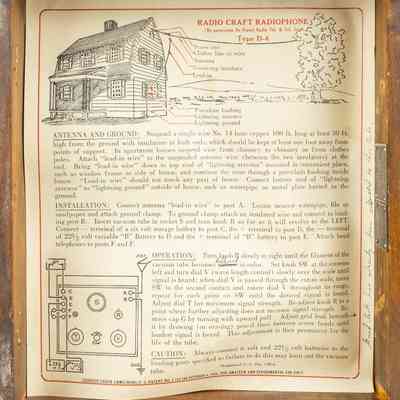 RADIO CRAFT RADIOPHONE
Type D-4
Antenna
Lead-in
Lightning arrester
Lightning ground
ANTENNA AND GROUND: Suspend a single wire No. 14 bare copper 100 ft. long at least 30 ft.
high from the ground with insulators at both ends, which should be kept at least one foot away from
points of support. In apartment houses suspend wire from chimney to chimney or from clothes
poles. Attach "lead-in wire" to the suspended antenna wire (between the two insulators) at the
end. Bring "lead-in wire" down to top end of "lightning arrestor" mounted in convenient place,
such as window frame or side of house, and continue the wire through a porcelain bushing inside
house. "Lead-in wire" should not touch any part of house. Connect bottom end of "lightning
arrestor" to "lightning ground" outside of house, such as waterpipe or metal plate buried in the
ground.
INSTALLATION: Connect antenna "lead-in wire" to post A. Locate nearest waterpipe, file or
sandpaper and attach ground clamp. To ground clamp attach an insulated wire and connect to bind-
ing post B. Insert vacuum tube in socket S and turn knob R as far as it will revolve to the LEFT.
Connect — terminal of a six volt storage battery to post C, the + terminal to post D, the — terminal
of 22½ volt variable "B" Battery to D and the + terminal of "B" battery to post E. Attach head
telephones to posts F and F.
OPERATION: Turn knob R slowly to right until the filament of the
vacuum tube becomes in color. Set knob SW at the extreme
left and turn dial V (wave length control) slowly over the scale until
signal is heard; when dial V is passed through the entire scale, turn
SW to the second contact and rotate dial V throughout its range,
repeat for each point on SW until the desired signal is heard.
Adjust dial T for maximum signal strength. Re-adjust knob R to a
point where further adjusting does not increase signal strength. Re-
move cap G by turning with upward pull. Adjust grid leak beneath
it by drawing (or erasing) pencil lines between screw heads until
loudest signal is heard. This adjustment is then permanent for the
life of the tube.
CAUTION: Always connect 6 volt and 22½ volt batteries to the
binding posts specified as failure to do this may burn out the vacuum
tube.